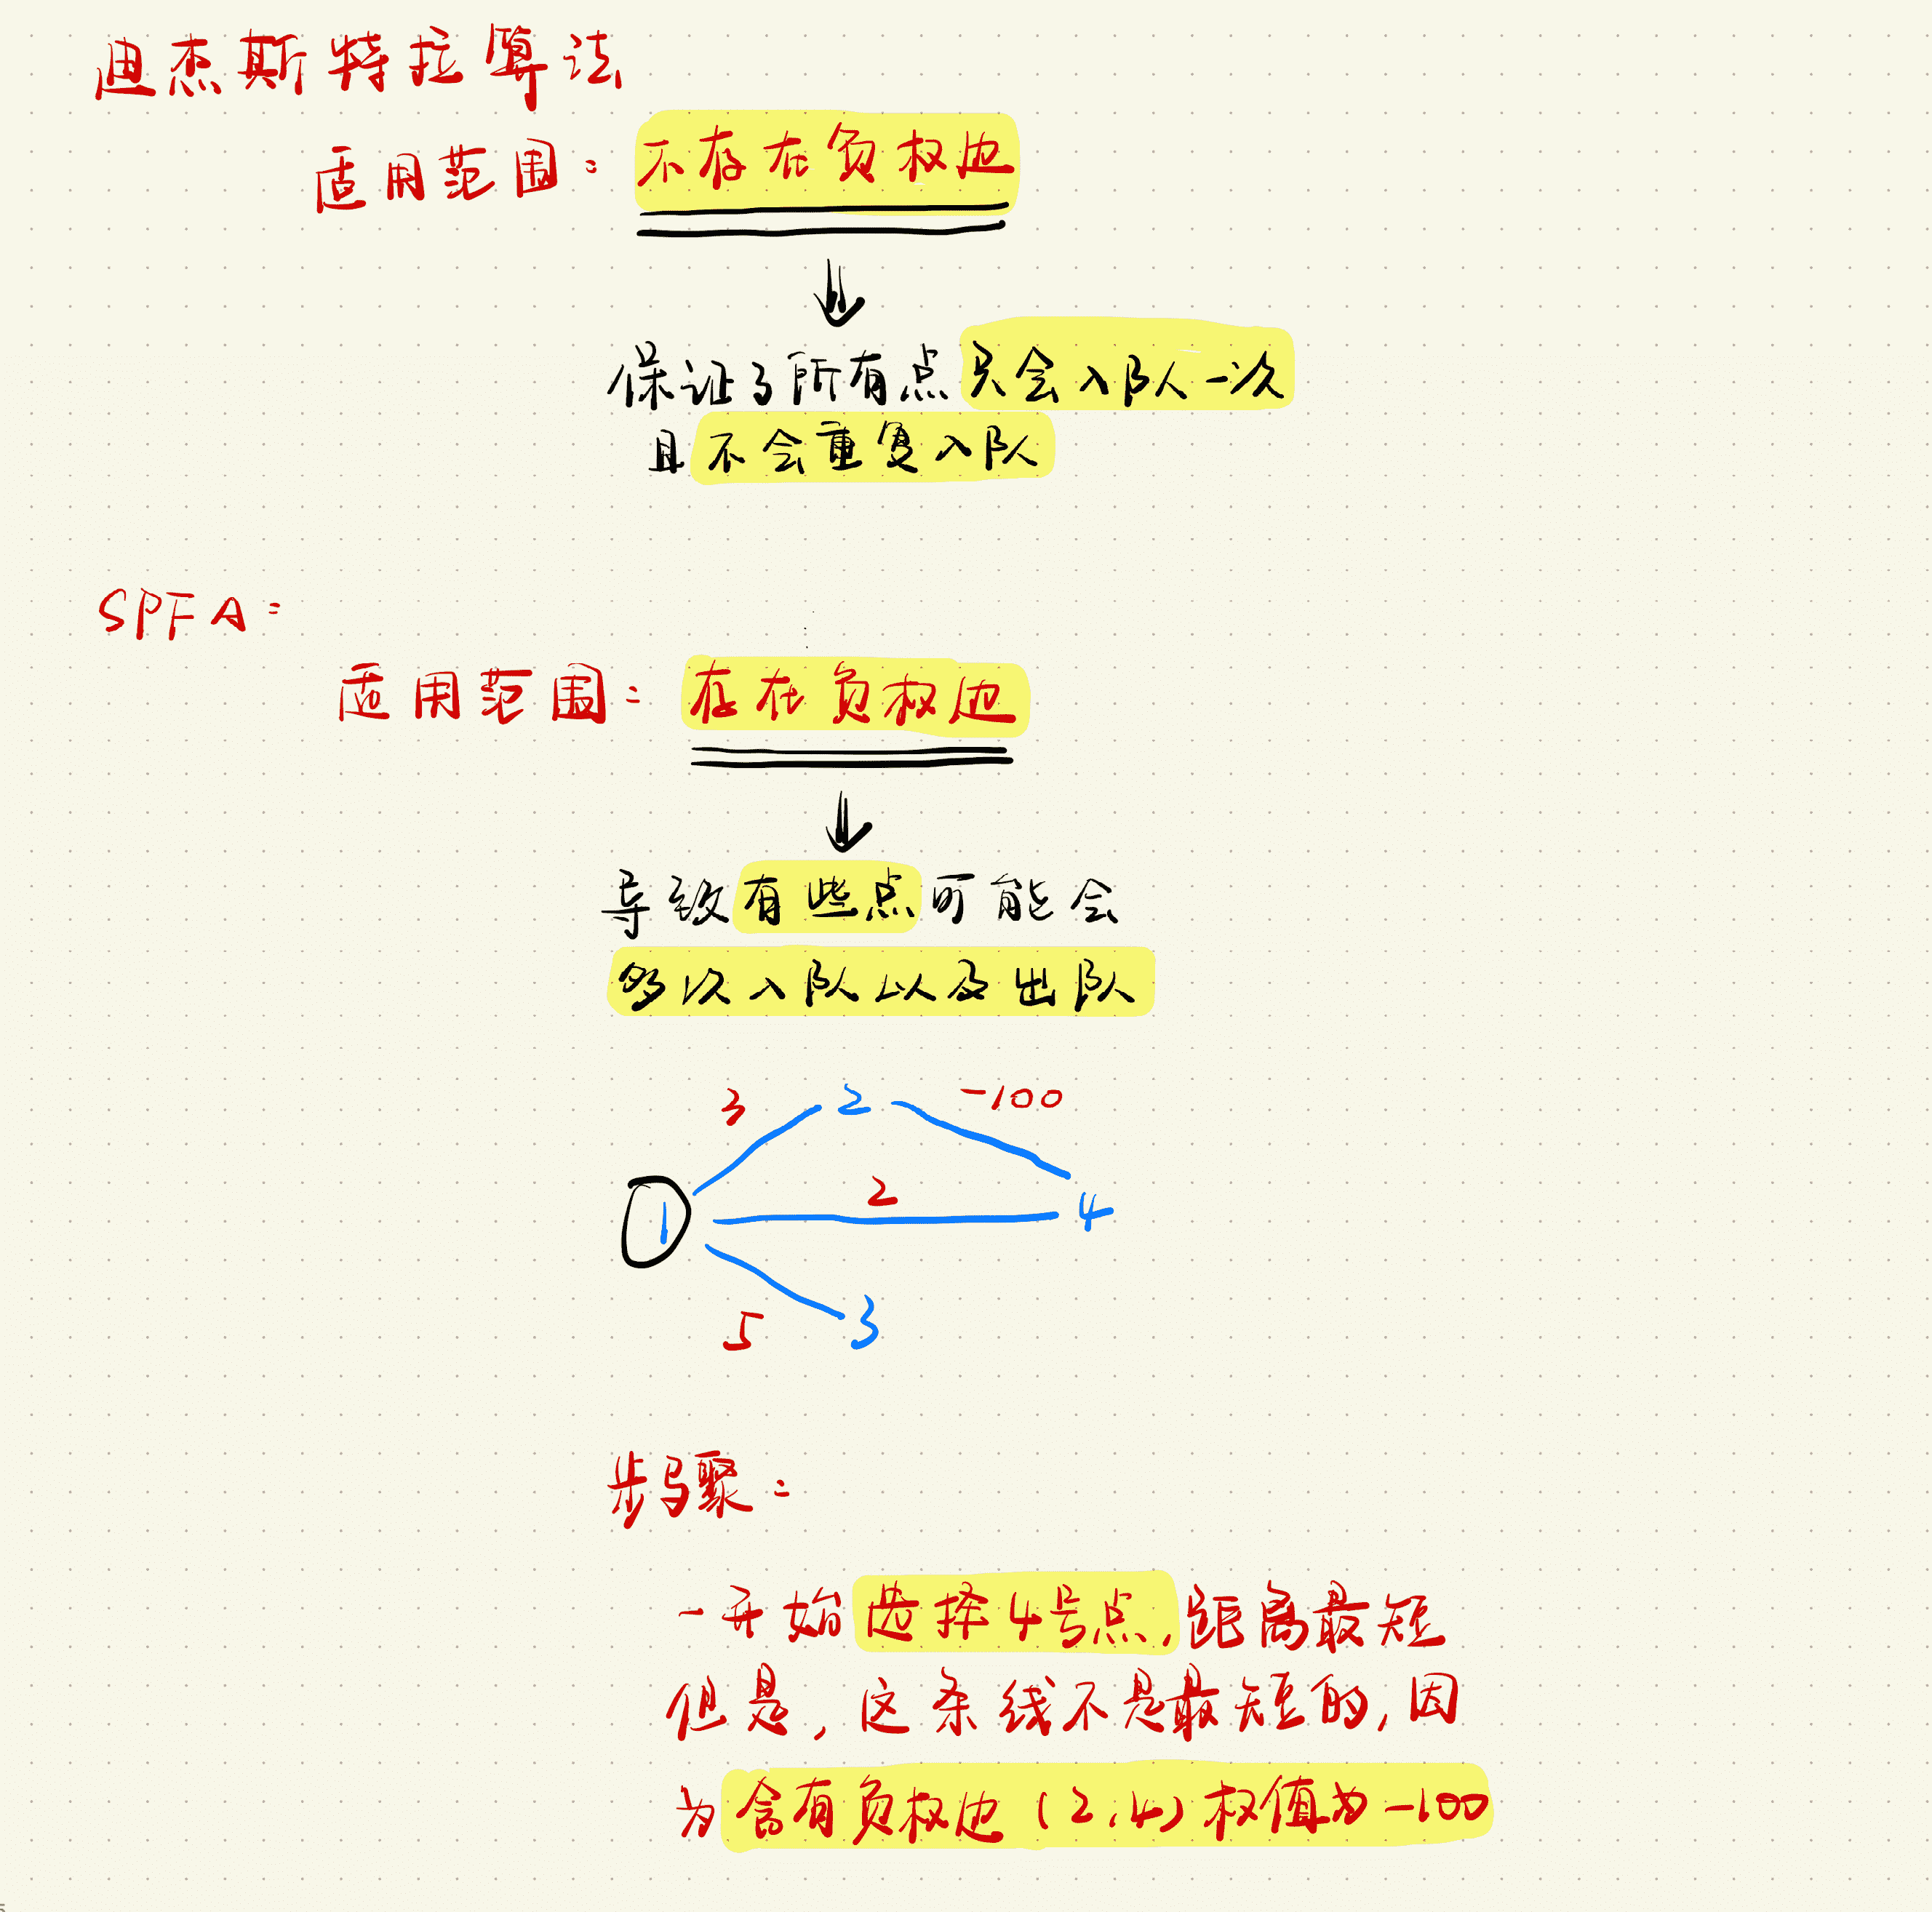 迪杰斯特拉算法
适用范围：不存在负权边
保证了所有点只会入队一次
且不会重复入队
SPFA：
适用范围：存在负权边
导致有些点可能会
多次入队以及出队
3 2 -100
1 2 4
5 3
步骤：
一开始选择4号点，距离最短
但是，这条线不是最短的，因
为含有负权边（2，4）权值为-100